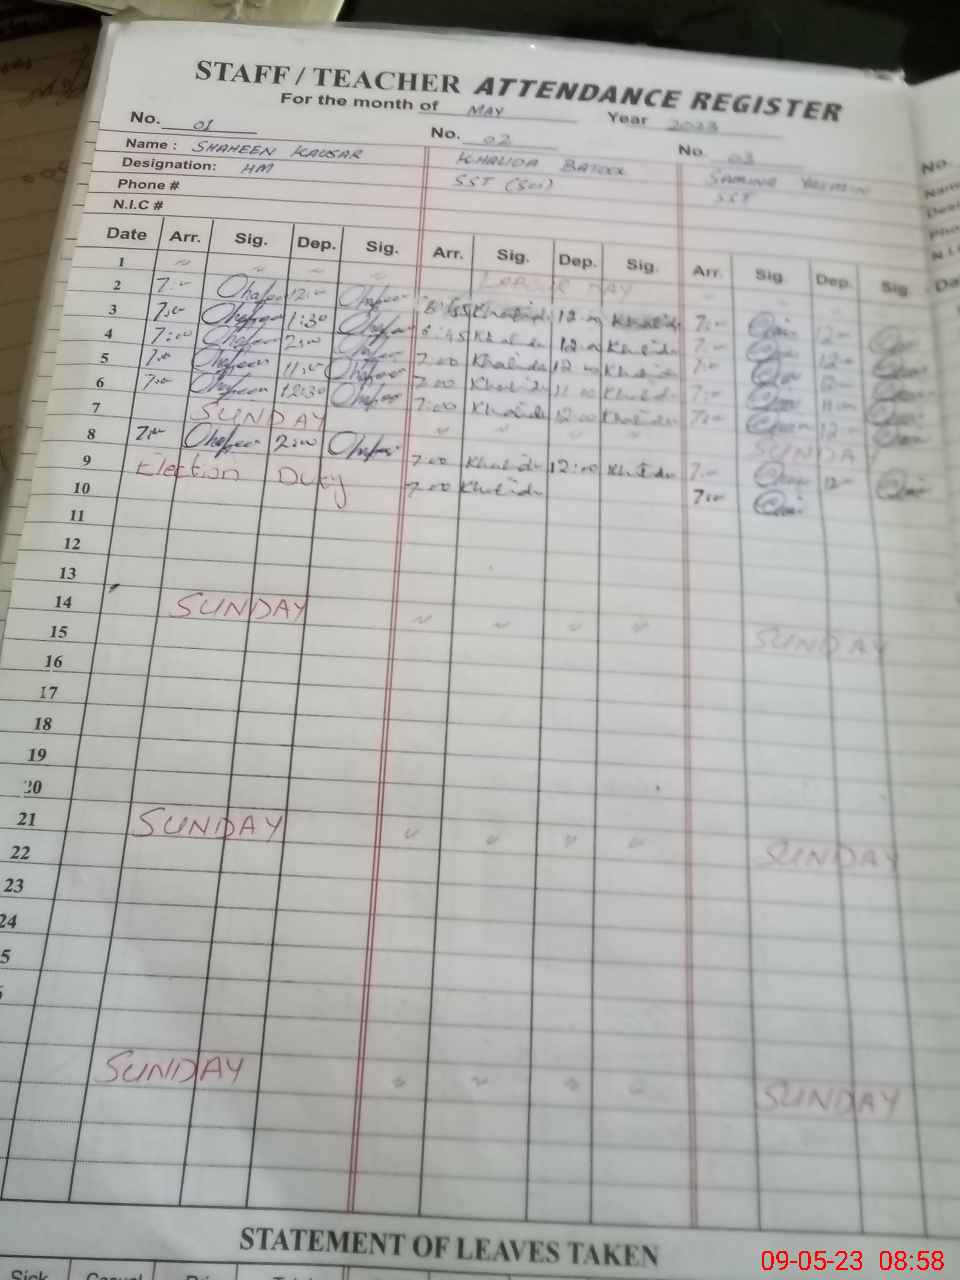 STAFF / TEACHER ATTENDANCE REGISTER
For the month of MAY Year 2023
No. 01 No. 02 No. 03 No.
Name : SHAHEEN KAUSAR KHALIDA BATOOL SAMINA YASMIN
Designation: HM SST (Sci) SST
Phone #
N.I.C #
Date Arr. Sig. Dep. Sig. Arr. Sig. Dep. Sig. Arr. Sig. Dep. Sig.
1 " " " " LABOUR DAY
2 7:00 Shaheen 12:00 Shaheen 6:45 Khalida 12:00 Khalida 7:00 12:00
3 7:00 Shaheen 1:30 Shaheen 6:45 Khalida 12:00 Khalida 7:00 12:00
4 7:00 Shaheen 2:00 Shaheen 7:00 Khalida 12:00 Khalida 7:00 12:00
5 7:00 Shaheen 11:00 Shaheen 7:00 Khalida 11:00 Khalida 7:00 11:00
6 7:00 Shaheen 12:30 Shaheen 7:00 Khalida 12:00 Khalida 7:00 12:00
7 SUNDAY " " " " SUNDAY
8 7:00 Shaheen 2:00 Shaheen 7:00 Khalida 12:00 Khalida 7:00 12:00
9 Election Duty 7:00 Khalida 7:00
10
11
12
13
14 SUNDAY " " " " SUNDAY
15
16
17
18
19
20
21 SUNDAY " " " " SUNDAY
22
23
24
SUNDAY " " " " SUNDAY
STATEMENT OF LEAVES TAKEN
Sick Casual
09-05-23 08:58